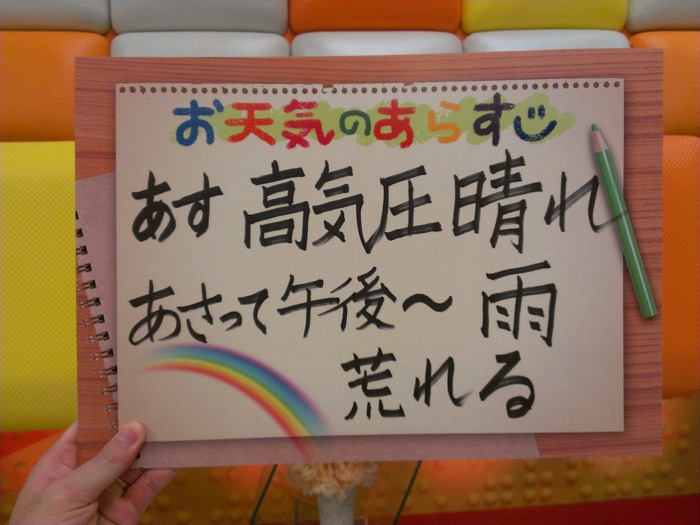 お天気のあらすじ
あす 高気圧 晴れ
あさって午後～ 雨
荒れる